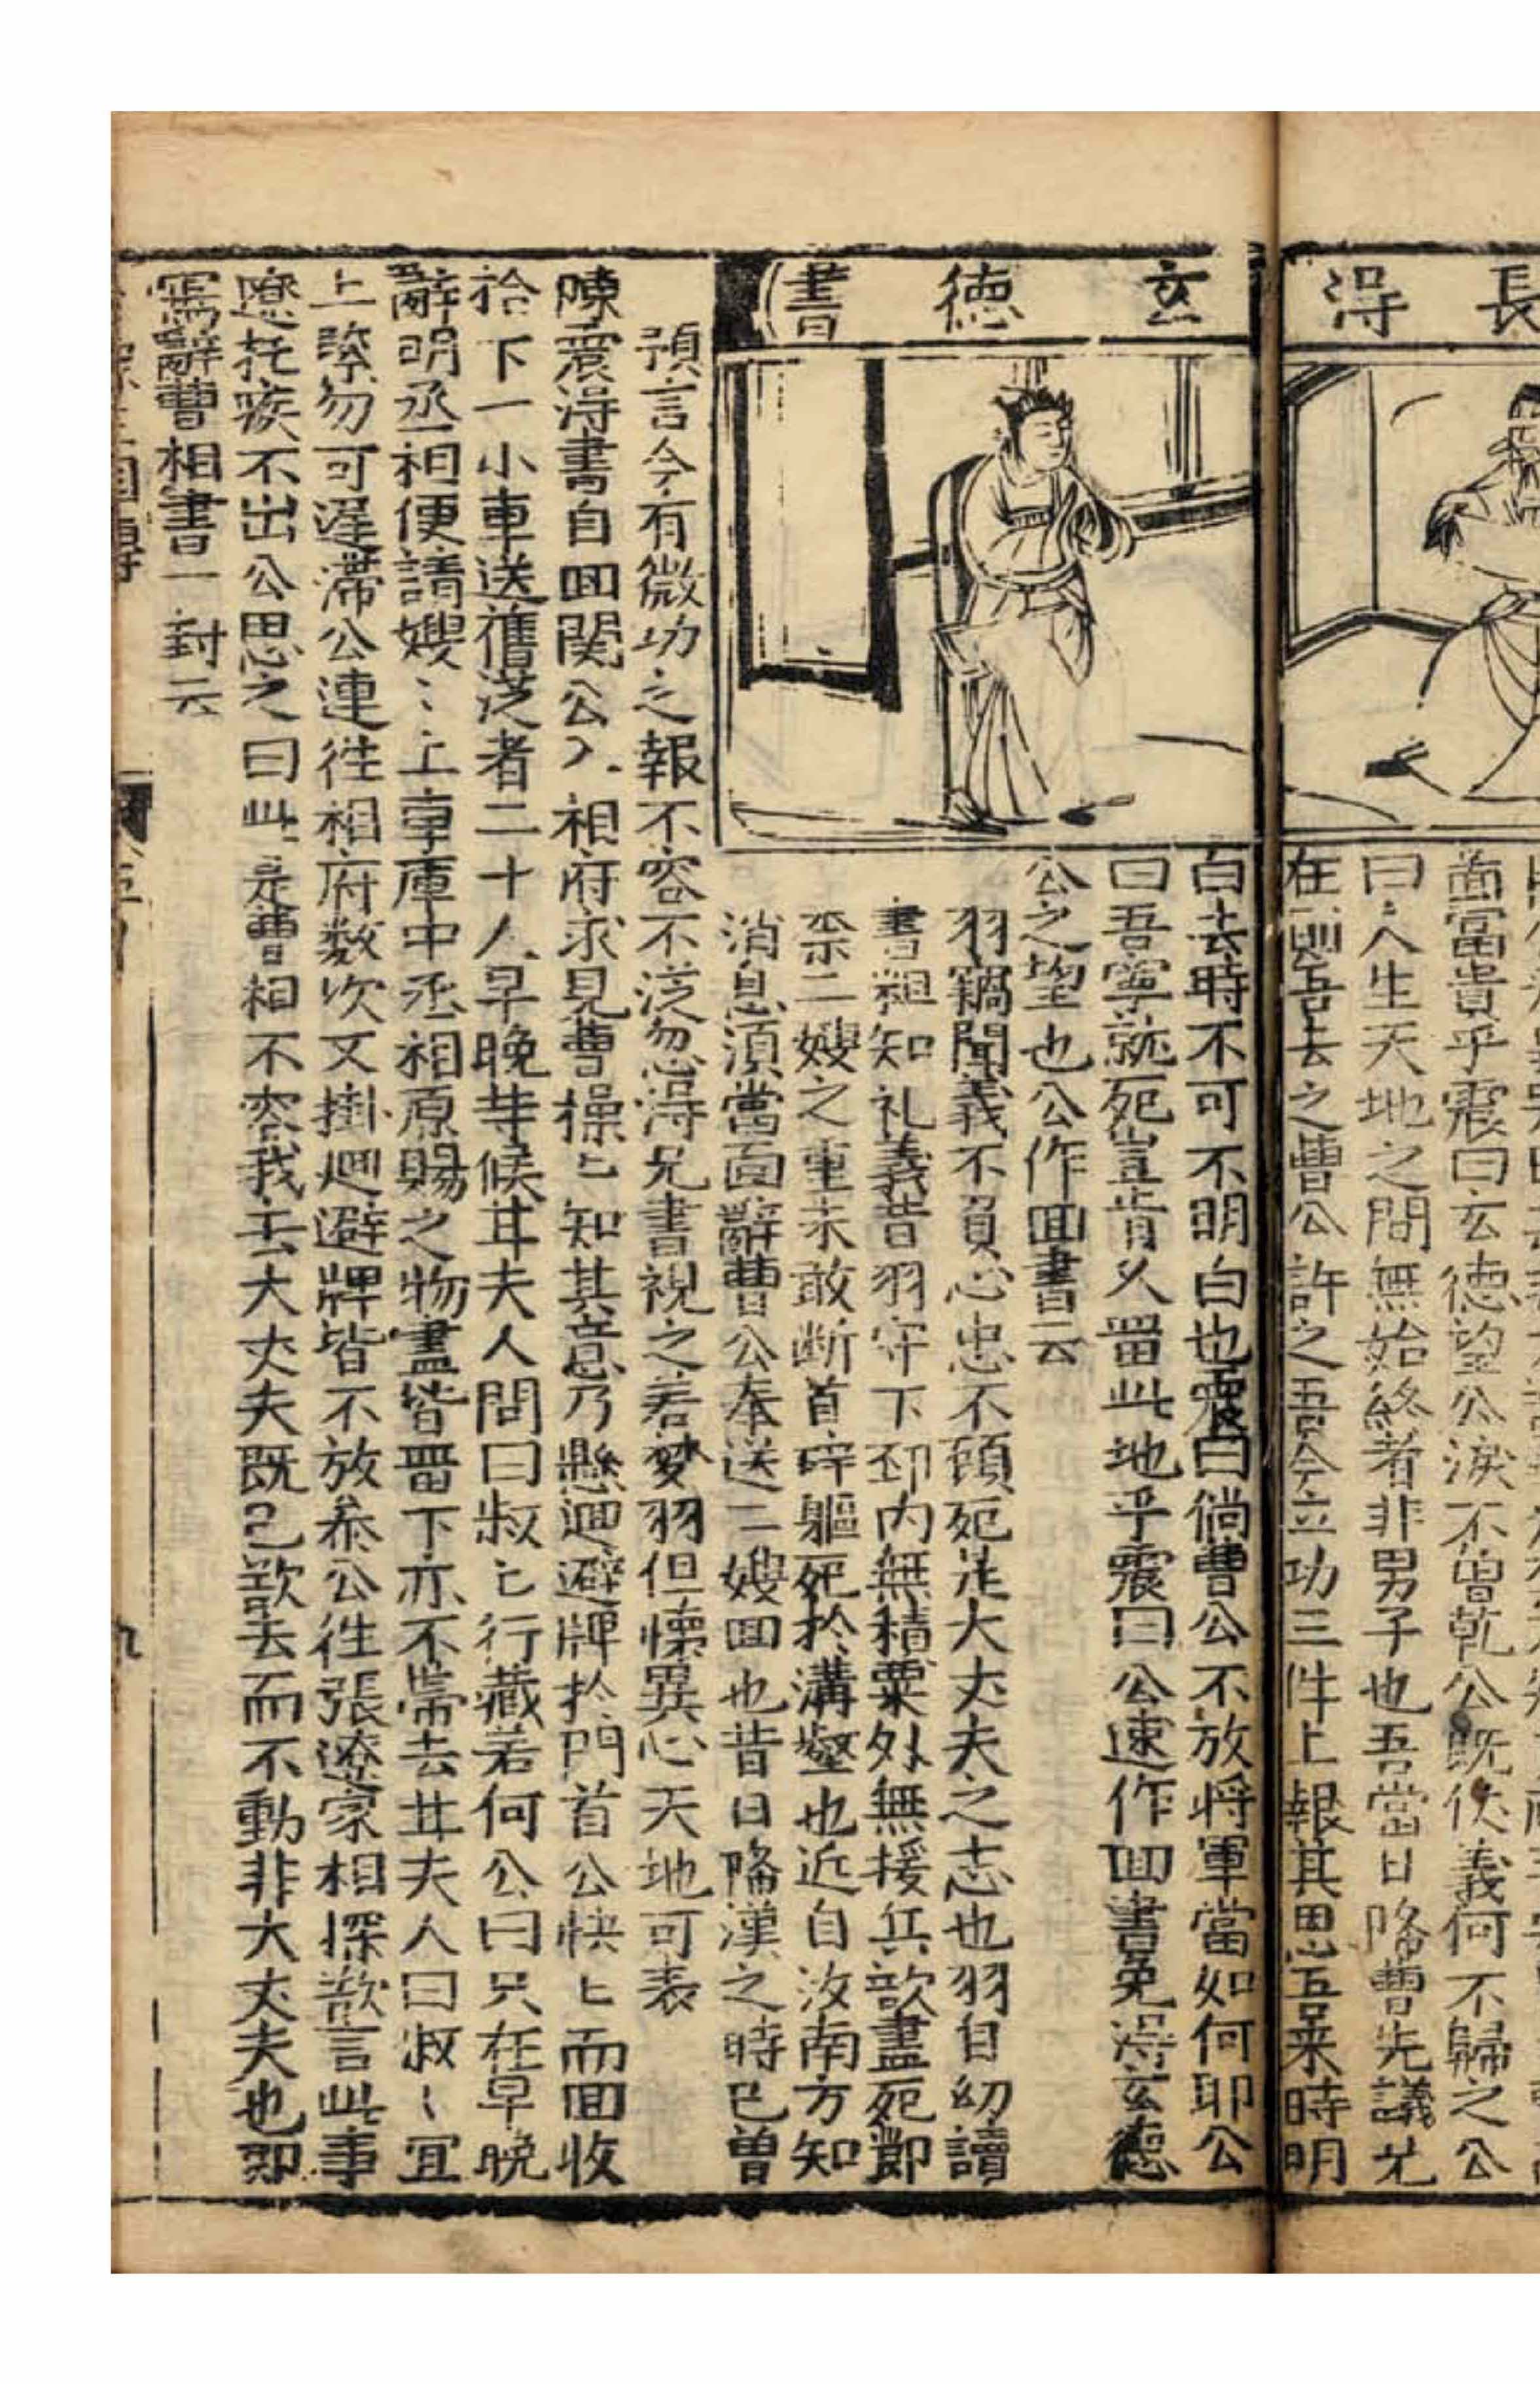 長淂
玄德書
面富貴乎震曰玄德望公淚不曽乹公既仗義何不歸之公
曰人生天地之間無始終者非男子也吾當日降曹先議尤
在前吾去之曹公許之吾今立功三件上報其恩吾来時明
白去時不可不明白也震曰倘曹公不放将軍當如何耶公
曰吾寧就死豈肯乆畱此地乎震曰公速作囬書免淂玄德
公之望也公作囬書云
羽竊聞義不負心忠不顧死是大丈夫之志也羽自幼讀
書粗知礼義昔羽守下邳内無積粟外無援兵欲盡死節
柰二嫂之重未敢断首碎軀死於溝壑也近自汝南方知
消息湏當面辭曹公奉送二嫂囬也昔日降漢之時已曽
預言今有微功之報不容不泛忽淂兄書視之若夢羽但懐異心天地可表
陳震淂書自囬関公入相府求見曹操〻知其意乃懸迴避牌扵門首公怏〻而囬收
拾下一小車送舊從者二十人早晚䒭候甘夫人問曰叔〻行藏若何公曰只在早晚
辭明丞相便請嫂〻上車庫中丞相原賜之物盡皆畱下亦不帶去甘夫人曰叔〻宜
上緊勿可遅滯公連徃相府数次又掛迴避牌皆不放叅公徃張遼家相探欲言此事
遼托疾不出公思之曰此是曹相不容我去大丈夫既已欲去而不動非大丈夫也即
寫辭曹相書一封云